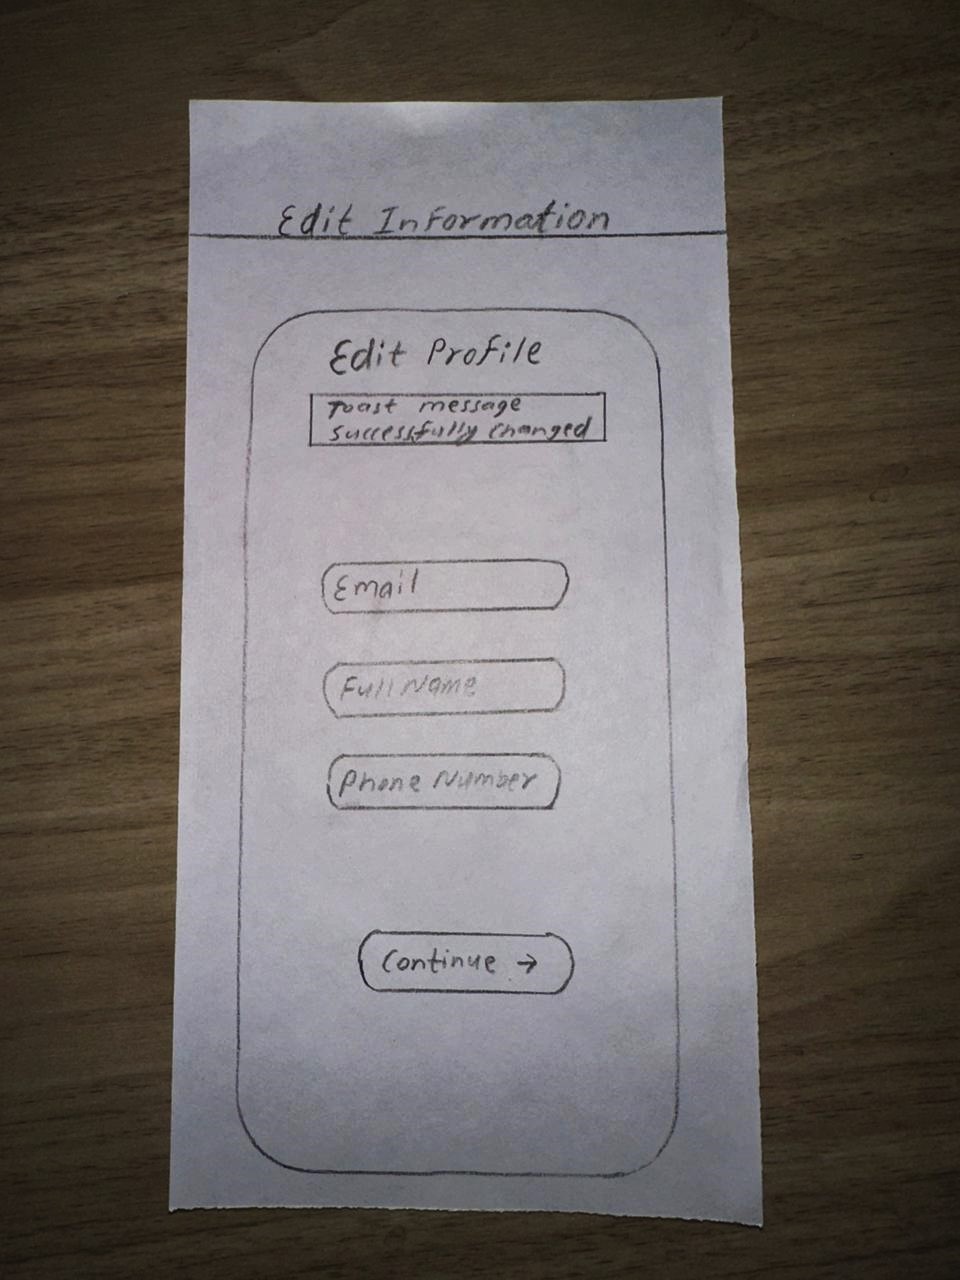 Edit Information
Edit Profile
Toast message
successfully changed
Email
Full Name
Phone Number
Continue →